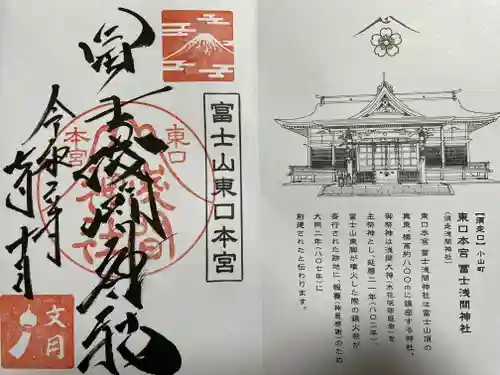 【須走口】小山町
東口本宮 冨士浅間神社
(須走浅間神社)
東口本宮 冨士浅間神社は富士山頂の
真東、標高約八〇〇mに鎮座する神社。
御祭神は浅間大神(木花咲耶姫命)を
主祭神とし、延暦二一年(八〇二年)、
富士山東脚が噴火した際の鎮火祭が
斎行された跡地に、報賽(神恩感謝)のため
大同二年(八〇七年)に
創建されたと伝わります。
富士山東口本宮
東口
本宮
冨士浅間神社
令和
文月